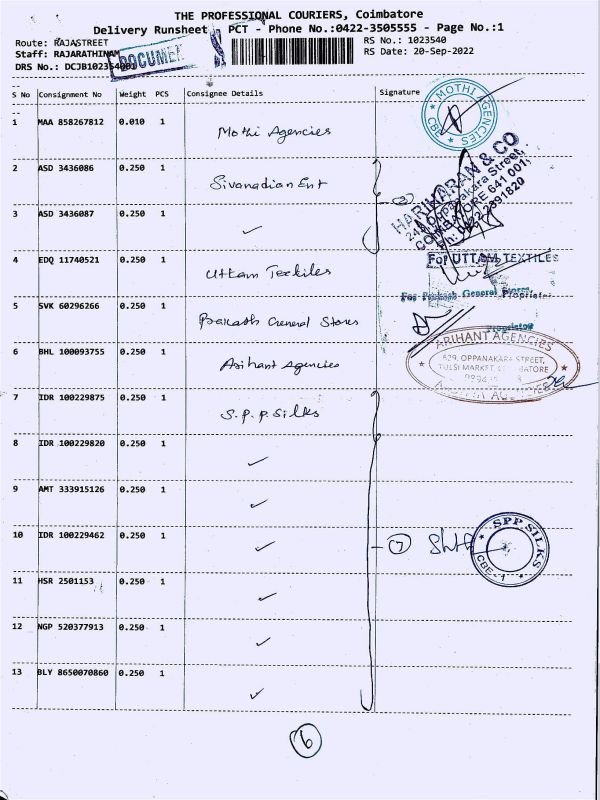 THE PROFESSIONAL COURIERS, Coimbatore
Delivery Runsheet PCT - Phone No.:0422-3505555 - Page No.:1
Route: RAJASTREET
RS No.: 1023540
Staff: RAJARATHINAM
RS Date: 20-Sep-2022
DRS No.: DCJB102354001
DOCUMENT
S No Consignment No Weight PCS Consignee Details Signature
1 MAA 858267812 0.010 1 Mothi Agencies
MOTHI AGENCIES
CBE
2 ASD 3436086 0.250 1 Sivanadian Ent
HARIKARAN & CO
Oppanakara Street,
COIMBATORE 641 001,
3 ASD 3436087 0.250 1 ✓
4 EDQ 11740521 0.250 1 Uttam Textiles
For UTTAM TEXTILES
Proprietor
5 SVK 60296266 0.250 1 Prakash General Stores
For Prakash General Stores,
Proprietor
6 BHL 100093755 0.250 1 Arihant Agencies
ARIHANT AGENCIES
629, OPPANAKARA STREET,
TULSI MARKET, COIMBATORE
7 IDR 100229875 0.250 1 S.P.P. Silks
8 IDR 100229820 0.250 1 ✓
9 AMT 333915126 0.250 1 ✓
10 IDR 100229462 0.250 1 ✓
7
SPP SILKS
CBE - 1
11 HSR 2501153 0.250 1 ✓
12 NGP 520377913 0.250 1 ✓
13 BLY 8650070860 0.250 1 ✓
6